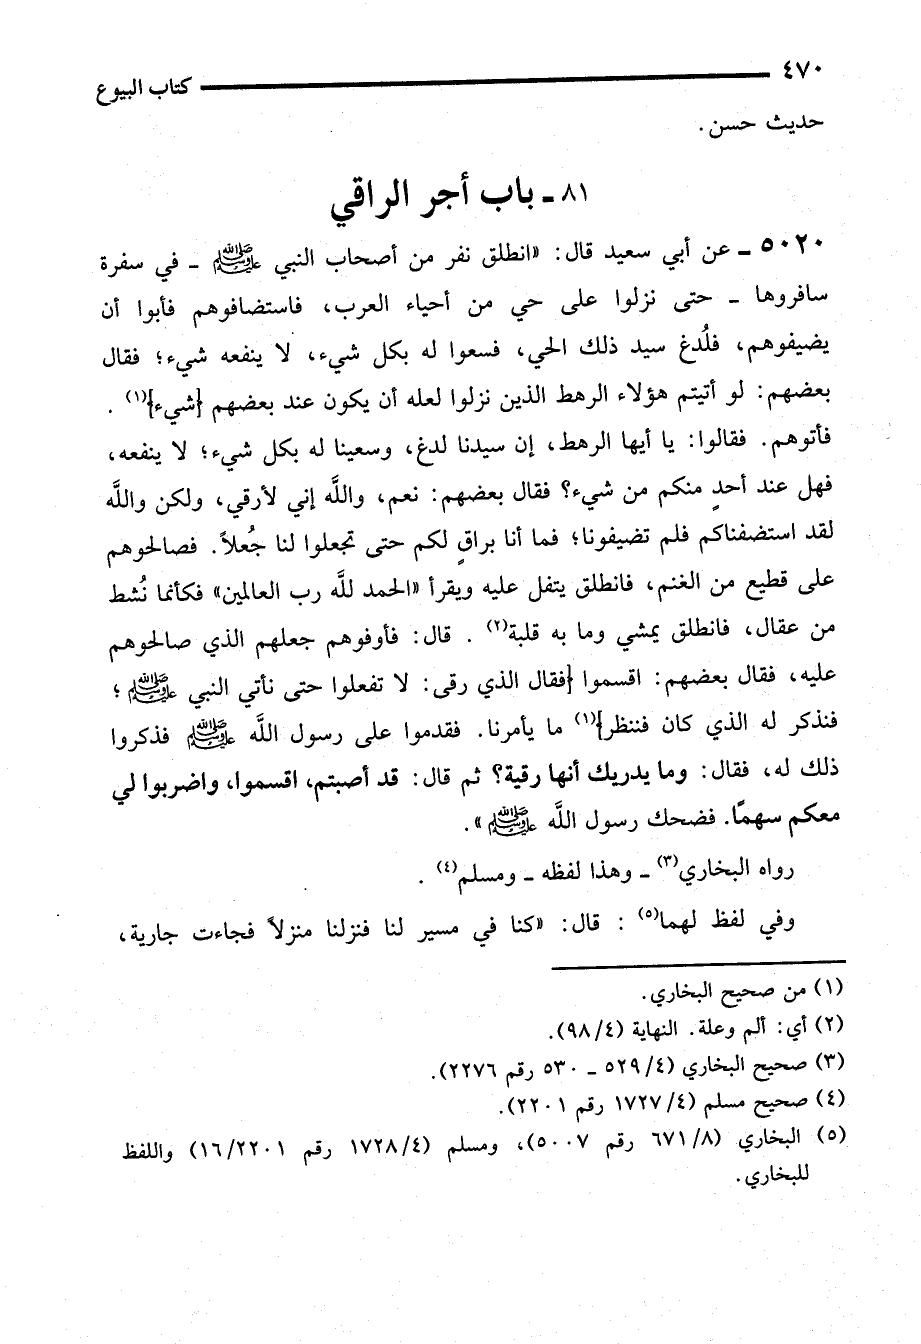 ٤٧٠ كتاب البيوع
حديث حسن.
٨١ ـ باب أجر الراقي
٥٠٢٠ ـ عن أبي سعيد قال: «انطلق نفر من أصحاب النبي ﷺ ـ في سفرة
سافروها ـ حتى نزلوا على حي من أحياء العرب، فاستضافوهم فأبوا أن
يضيفوهم، فلُدغ سيد ذلك الحي، فسعوا له بكل شيء، لا ينفعه شيء؛ فقال
بعضهم: لو أتيتم هؤلاء الرهط الذين نزلوا لعله أن يكون عند بعضهم {شيء}(١) .
فأتوهم. فقالوا: يا أيها الرهط، إن سيدنا لدغ، وسعينا له بكل شيء؛ لا ينفعه،
فهل عند أحدٍ منكم من شيء؟ فقال بعضهم: نعم، واللَّه إني لأرقي، ولكن واللَّه
لقد استضفناكم فلم تضيفونا؛ فما أنا براقٍ لكم حتى تجعلوا لنا جُعلاً. فصالحوهم
على قطيع من الغنم، فانطلق يتفل عليه ويقرأ «الحمد للَّه رب العالمين» فكأنما نُشط
من عقال، فانطلق يمشي وما به قلبة(٢) . قال: فأوفوهم جعلهم الذي صالحوهم
عليه، فقال بعضهم: اقسموا {فقال الذي رقى: لا تفعلوا حتى نأتي النبي ﷺ ؛
فنذكر له الذي كان فننظر}(١) ما يأمرنا. فقدموا على رسول اللَّه ﷺ فذكروا
ذلك له، فقال: وما يدريك أنها رقية؟ ثم قال: قد أصبتم، اقسموا، واضربوا لي
معكم سهمًا. فضحك رسول اللَّه ﷺ ».
رواه البخاري(٣) ـ وهذا لفظه ـ ومسلم(٤) .
وفي لفظ لهما(٥) : قال: «كنا في مسير لنا فنزلنا منزلاً فجاءت جارية،
(١) من صحيح البخاري.
(٢) أي: ألم وعلة. النهاية (٩٨/٤).
(٣) صحيح البخاري (٥٢٩/٤ ـ ٥٣٠ رقم ٢٢٧٦).
(٤) صحيح مسلم (١٧٢٧/٤ رقم ٢٢٠١).
(٥) البخاري (٦٧١/٨ رقم ٥٠٠٧)، ومسلم (١٧٢٨/٤ رقم ١٦/٢٢٠١) واللفظ
للبخاري.